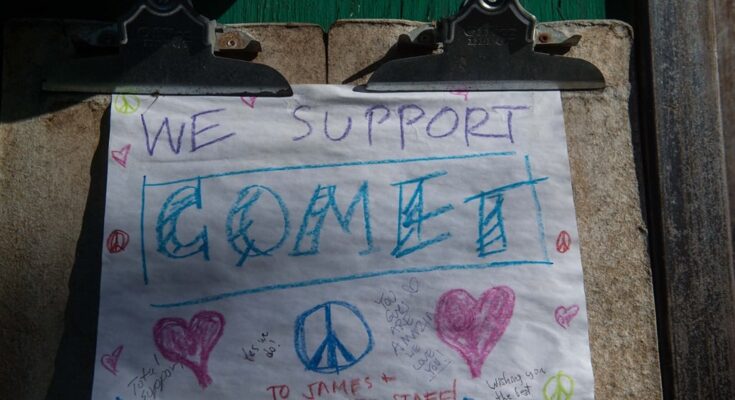 WE SUPPORT
COMET
Yes we
do!
YOU
GUYS
ARE
AMAZING
WE
LOVE
YOU!
Total
support!
Wishing you
the best
TO JAMES +
STAFF!